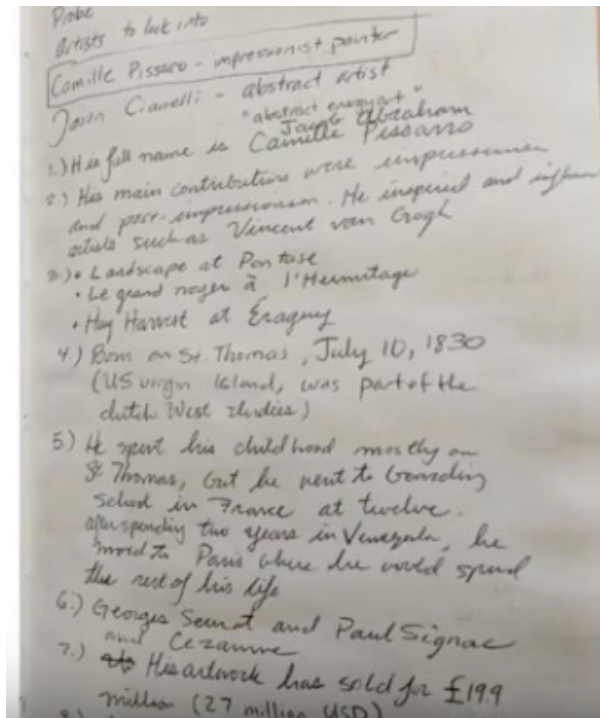 Probe
Artists to look into
Camille Pissaro - impressionist painter
Jason Cianelli - abstract artist
"abstract energy art"
Jacob Abraham
1.) His full name is Camille Pissarro
2.) His main contributions were impressionism
and post-impressionism. He inspired and
artists such as Vincent van Gogh
3.) • Landscape at Pontase
• Le grand noyer à l'Hermitage
• Hay Harvest at Éragny
4.) Born on St. Thomas, July 10, 1830
(US virgin Island, was part of the
dutch West Indies)
5.) He spent his childhood mostly on
St. Thomas, but he went to boarding
school in France at twelve.
after spending two years in Venezuela, he
moved to Paris where he would spend
the rest of his life
6.) Georges Seurat and Paul Signac
and Cezanne
7.) His artwork has sold for £19.9
million (27 million USD)